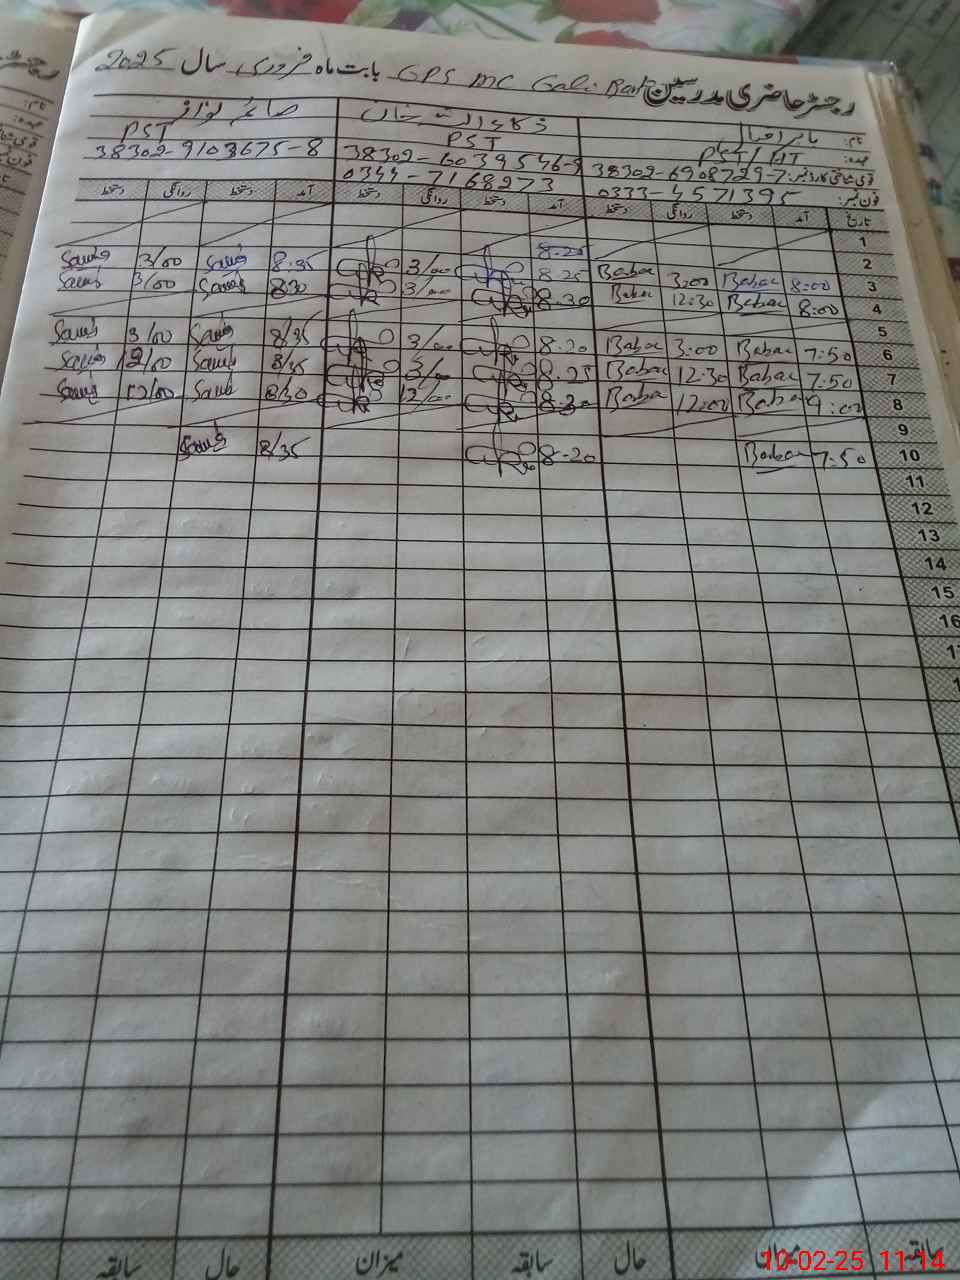 رجسٹر حاضری مدرسین GPS MC بابت ماہ فروری سال 2025
نام: بابر اقبال ذکاء اللہ خان صائم نواز
عہدہ: PST/HT PST PST
قومی شناختی کارڈ نمبر: 38302-6908729-7 38302-6039546-9 38302-9103675-8
فون نمبر: 0333-4571395 0344-7168273
تاریخ آمد دستخط روانگی دستخط آمد دستخط روانگی دستخط آمد دستخط روانگی دستخط
1
2 8-25
3 8:00 Babar 3:00 Babar 8-25 3/00 8:35 3/00
4 8:00 Babar 12:30 Babar 8-30 3/00 830 3/00
5
6 7:50 Babar 3:00 Babar 8-20 3/00 8/35 3/00
7 7:50 Babar 12:30 Babar 8-25 3/00 8/35 12/00
8 9:00 Babar 12:00 Babar 8-30 12/00 8/30 12/00
9
10 7:50 Babar 8-20 8/35
11
12
13
14
15
16
سابقہ میزان حال سابقہ میزان حال سابقہ
10-02-25 11:14